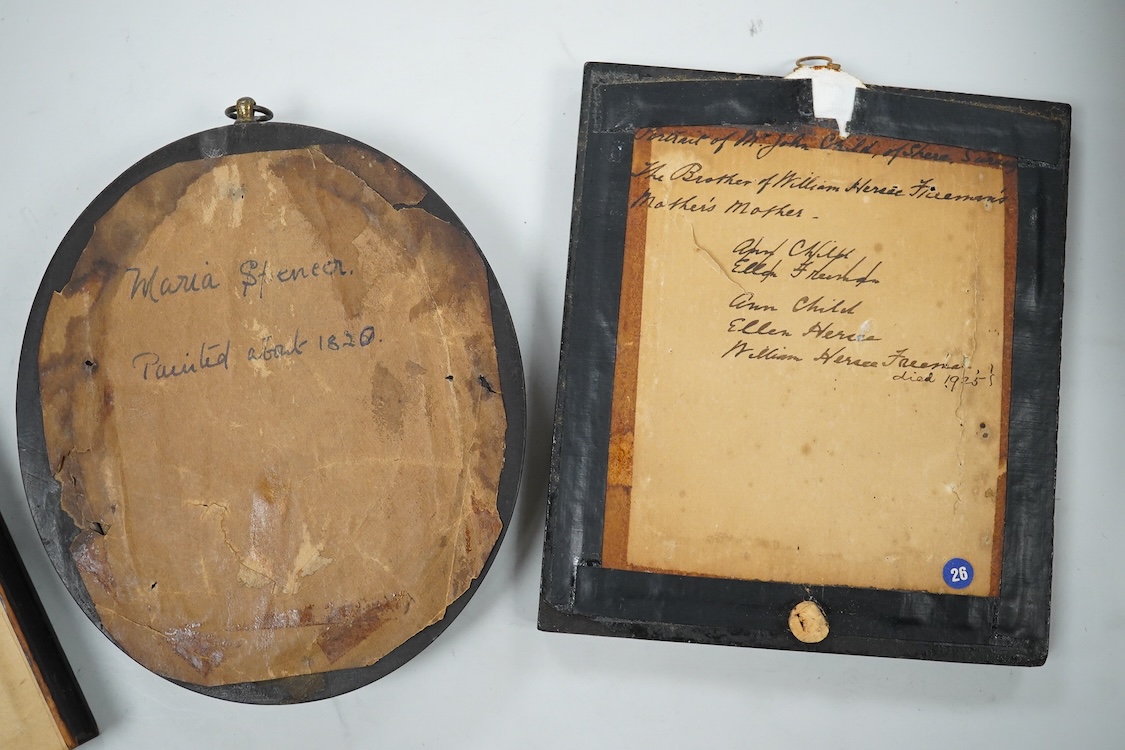 Maria Spencer.
Painted about 1820.
Portrait of Mr. John Child, of Shere, Surrey
The Brother of William Hersee Freeman's
Mother's Mother -
Ann Child
Ellen Freeman
Ann Child
Ellen Hersee
William Hersee Freeman
died 1925
26